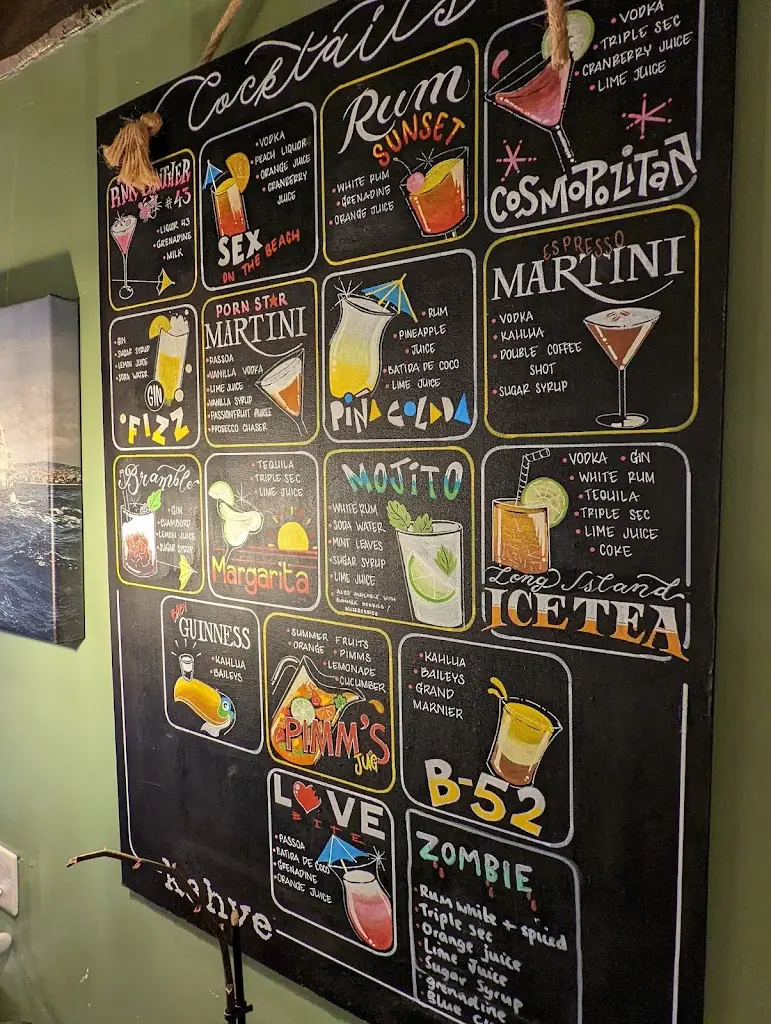 Cocktails
PINK PANTHER
#43
• LIQUOR 43
• GRENADINE
• MILK
• VODKA
• PEACH LIQUOR
• ORANGE JUICE
• CRANBERRY
JUICE
SEX
ON THE BEACH
Rum
SUNSET
• WHITE RUM
• GRENADINE
• ORANGE JUICE
• VODKA
• TRIPLE SEC
• CRANBERRY JUICE
• LIME JUICE
COSMOPOLITAN
• GIN
• SUGAR SYRUP
• LEMON JUICE
• SODA WATER
GIN
FIZZ
PORN STAR
MARTINI
• PASSOA
• VANILLA VODKA
• LIME JUICE
• VANILLA SYRUP
• PASSIONFRUIT PUREE
• PROSECCO CHASER
• RUM
• PINEAPPLE
JUICE
• BATIDA DE COCO
• LIME JUICE
PINA COLADA
ESPRESSO
MARTINI
• VODKA
• KAHLUA
• DOUBLE COFFEE
SHOT
• SUGAR SYRUP
Bramble
• GIN
• CHAMBORD
• LEMON JUICE
• SUGAR SYRUP
• TEQUILA
• TRIPLE SEC
• LIME JUICE
Margarita
MOJITO
• WHITE RUM
• SODA WATER
• MINT LEAVES
• SUGAR SYRUP
• LIME JUICE
• ALSO AVAILABLE WITH
• VODKA • GIN
• WHITE RUM
• TEQUILA
• TRIPLE SEC
• LIME JUICE
• COKE
Long Island
ICE TEA
BABY
GUINNESS
• KAHLUA
• BAILEYS
• SUMMER FRUITS
• ORANGE • PIMMS
• LEMONADE
• CUCUMBER
PIMM'S
JUG
• KAHLUA
• BAILEYS
• GRAND
MARNIER
B-52
LOVE
BITE
• PASSOA
• BATIDA DE COCO
• GRENADINE
• ORANGE JUICE
ZOMBIE
• Rum white + spiced
• Triple sec
• Orange juice
• Lime Juice
• Sugar Syrup
• grenadine
• Blue
Kahve